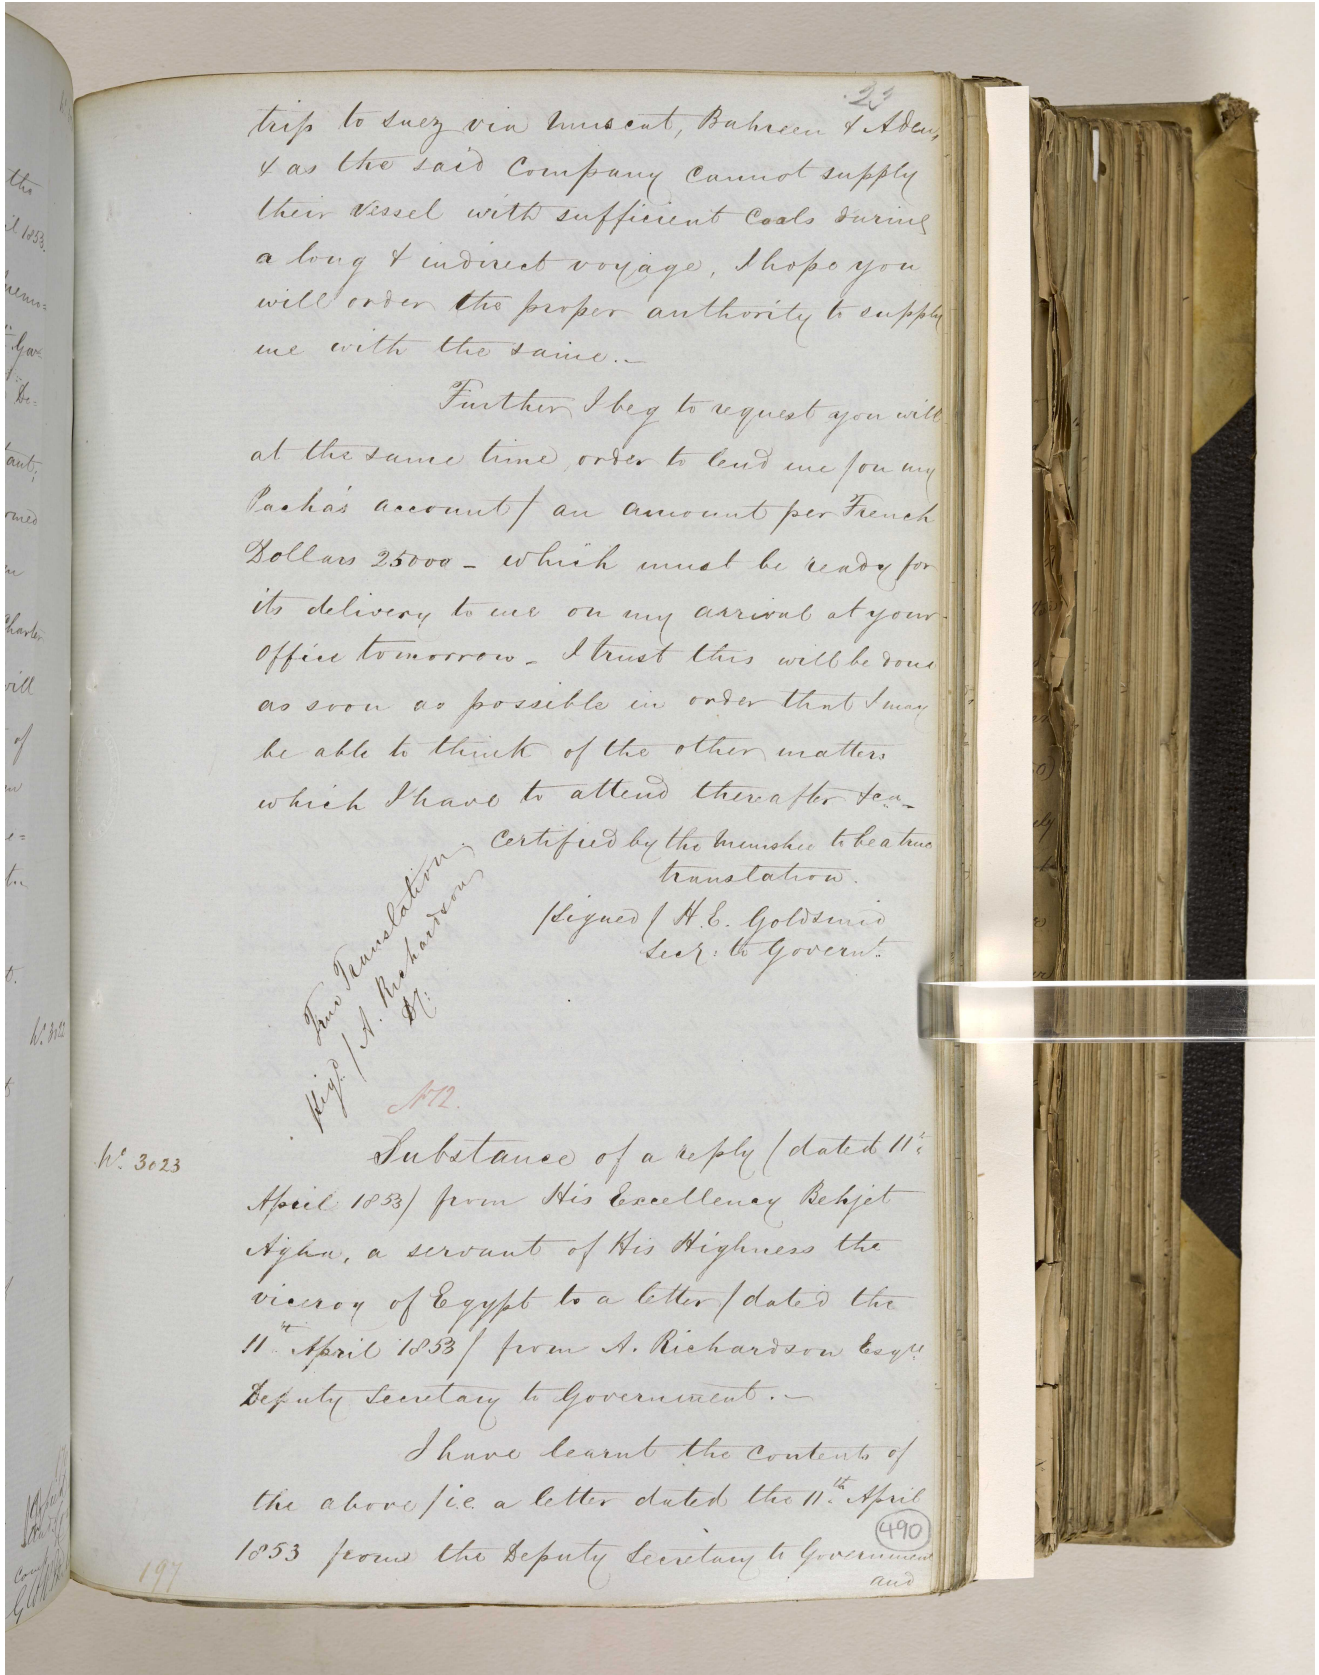 23
trip to Suez via Muscat, Bahreen & Aden,
& as the said Company cannot supply
their Vessel with sufficient Coals during
a long & indirect voyage, I hope you
will order the proper authority to supply
me with the same.-
Further I beg to request you will
at the same time order to lend me /on my
Pacha's account/ an amount per French
Dollars 25000 - which must be ready for
its delivery to me on my arrival at your
Office tomorrow - I trust this will be done
as soon as possible in order that I may
be able to think of the other matters
which I have to attend thereafter &ca -
Certified by the Munshee to be a true
translation.
/Signed/ H. E. Goldsmid
Secy: to Governt.
True Translation
Sigd / A. Richardson
Dy:
No 12.
No. 3023
Substance of a reply /dated 11th
April 1853/ from His Excellency Behjet
Agha, a servant of His Highness the
viceroy of Egypt to a letter /dated the
11th April 1853/ from A. Richardson Esqre
Deputy Secretary to Government.-
I have learnt the contents of
the above /i.e. a letter dated the 11th April
1853 from the Deputy Secretary to Government
and
490
197
the
il 1853.
De=
tant,
rmed
Charter
will
of
No. 3022